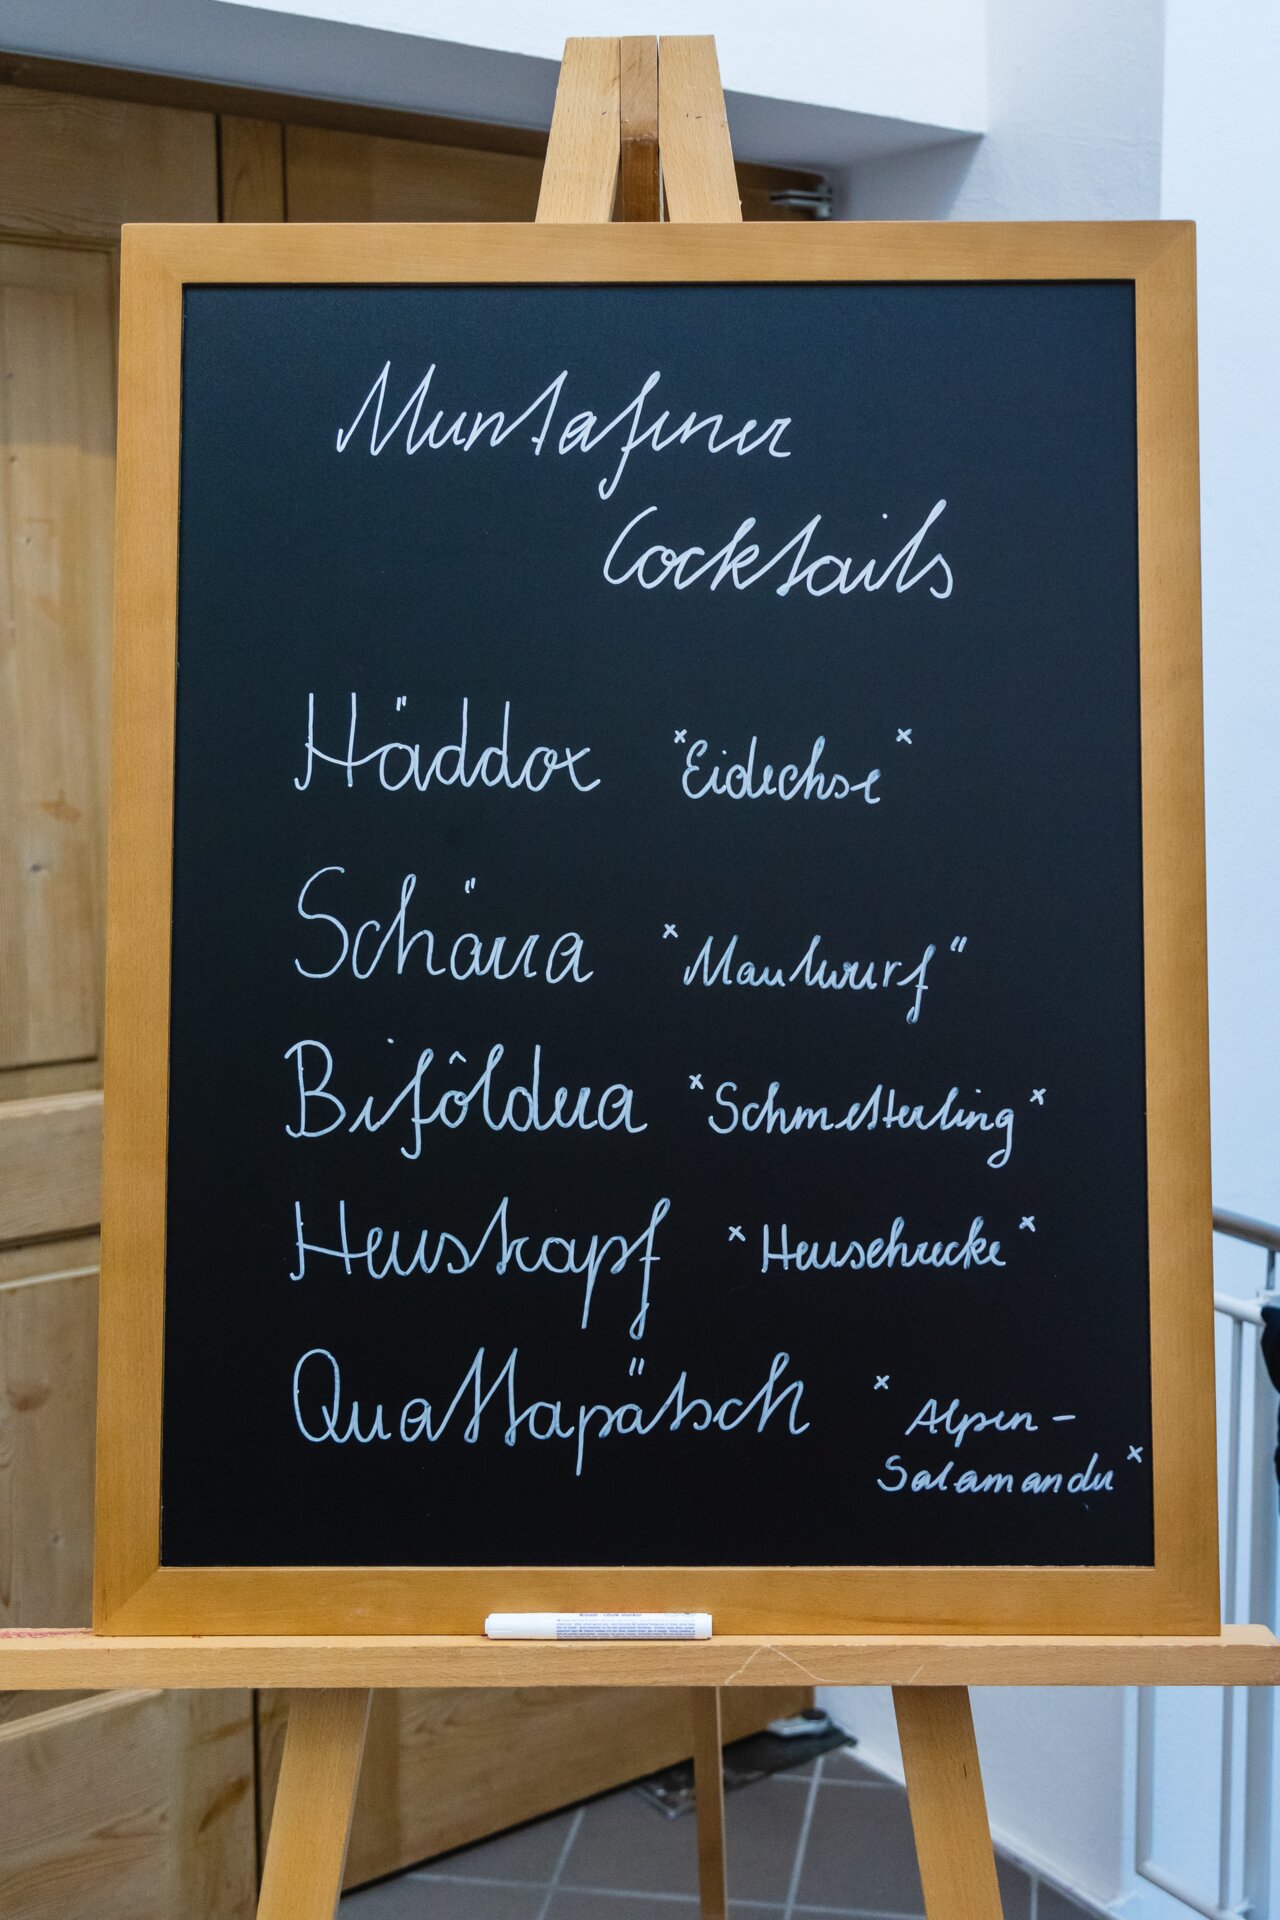 Muntafuner
Cocktails
Häddox *Eidechse*
Schäraa *Maulwurf"
Bifôldera *Schmetterling*
Heustrapf *Heuschrecke*
Quattapätsch *Alpen-
Salamander*